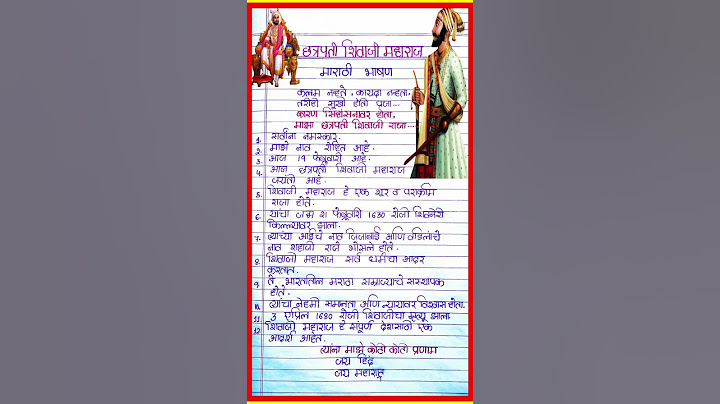 छत्रपती शिवाजी महाराज
मराठी भाषण
कलम नव्हते, कायदा नव्हता,
तरीही सुखी होती प्रजा...
कारण सिंहासनावर होता,
माझा छत्रपती शिवाजी राजा...
1. सर्वांना नमस्कार.
2. माझे नाव रोहित आहे.
3. आज 19 फेब्रुवारी आहे.
4. आज छत्रपती शिवाजी महाराज
जयंती आहे.
5. शिवाजी महाराज हे एक शूर व पराक्रमी
राजा होते.
6. यांचा जन्म 19 फेब्रुवारी 1630 रोजी शिवनेरी
किल्ल्यावर झाला.
7. त्यांच्या आईचे नाव जिजाबाई आणि वडिलांचे
नाव शहाजी राजे भोसले होते.
8. शिवाजी महाराज सर्व धर्माचा आदर
करतात.
9. ते भारतातील मराठा साम्राज्याचे संस्थापक
होते.
10. त्यांचा नेहमी समानता आणि न्यायावर विश्वास होता.
11. 3 एप्रिल 1680 रोजी शिवाजींचा मृत्यू झाला.
12. शिवाजी महाराज हे संपूर्ण देशासाठी एक
आदर्श आहेत.
त्यांना माझे कोटी कोटी प्रणाम
जय हिंद
जय महाराष्ट्र